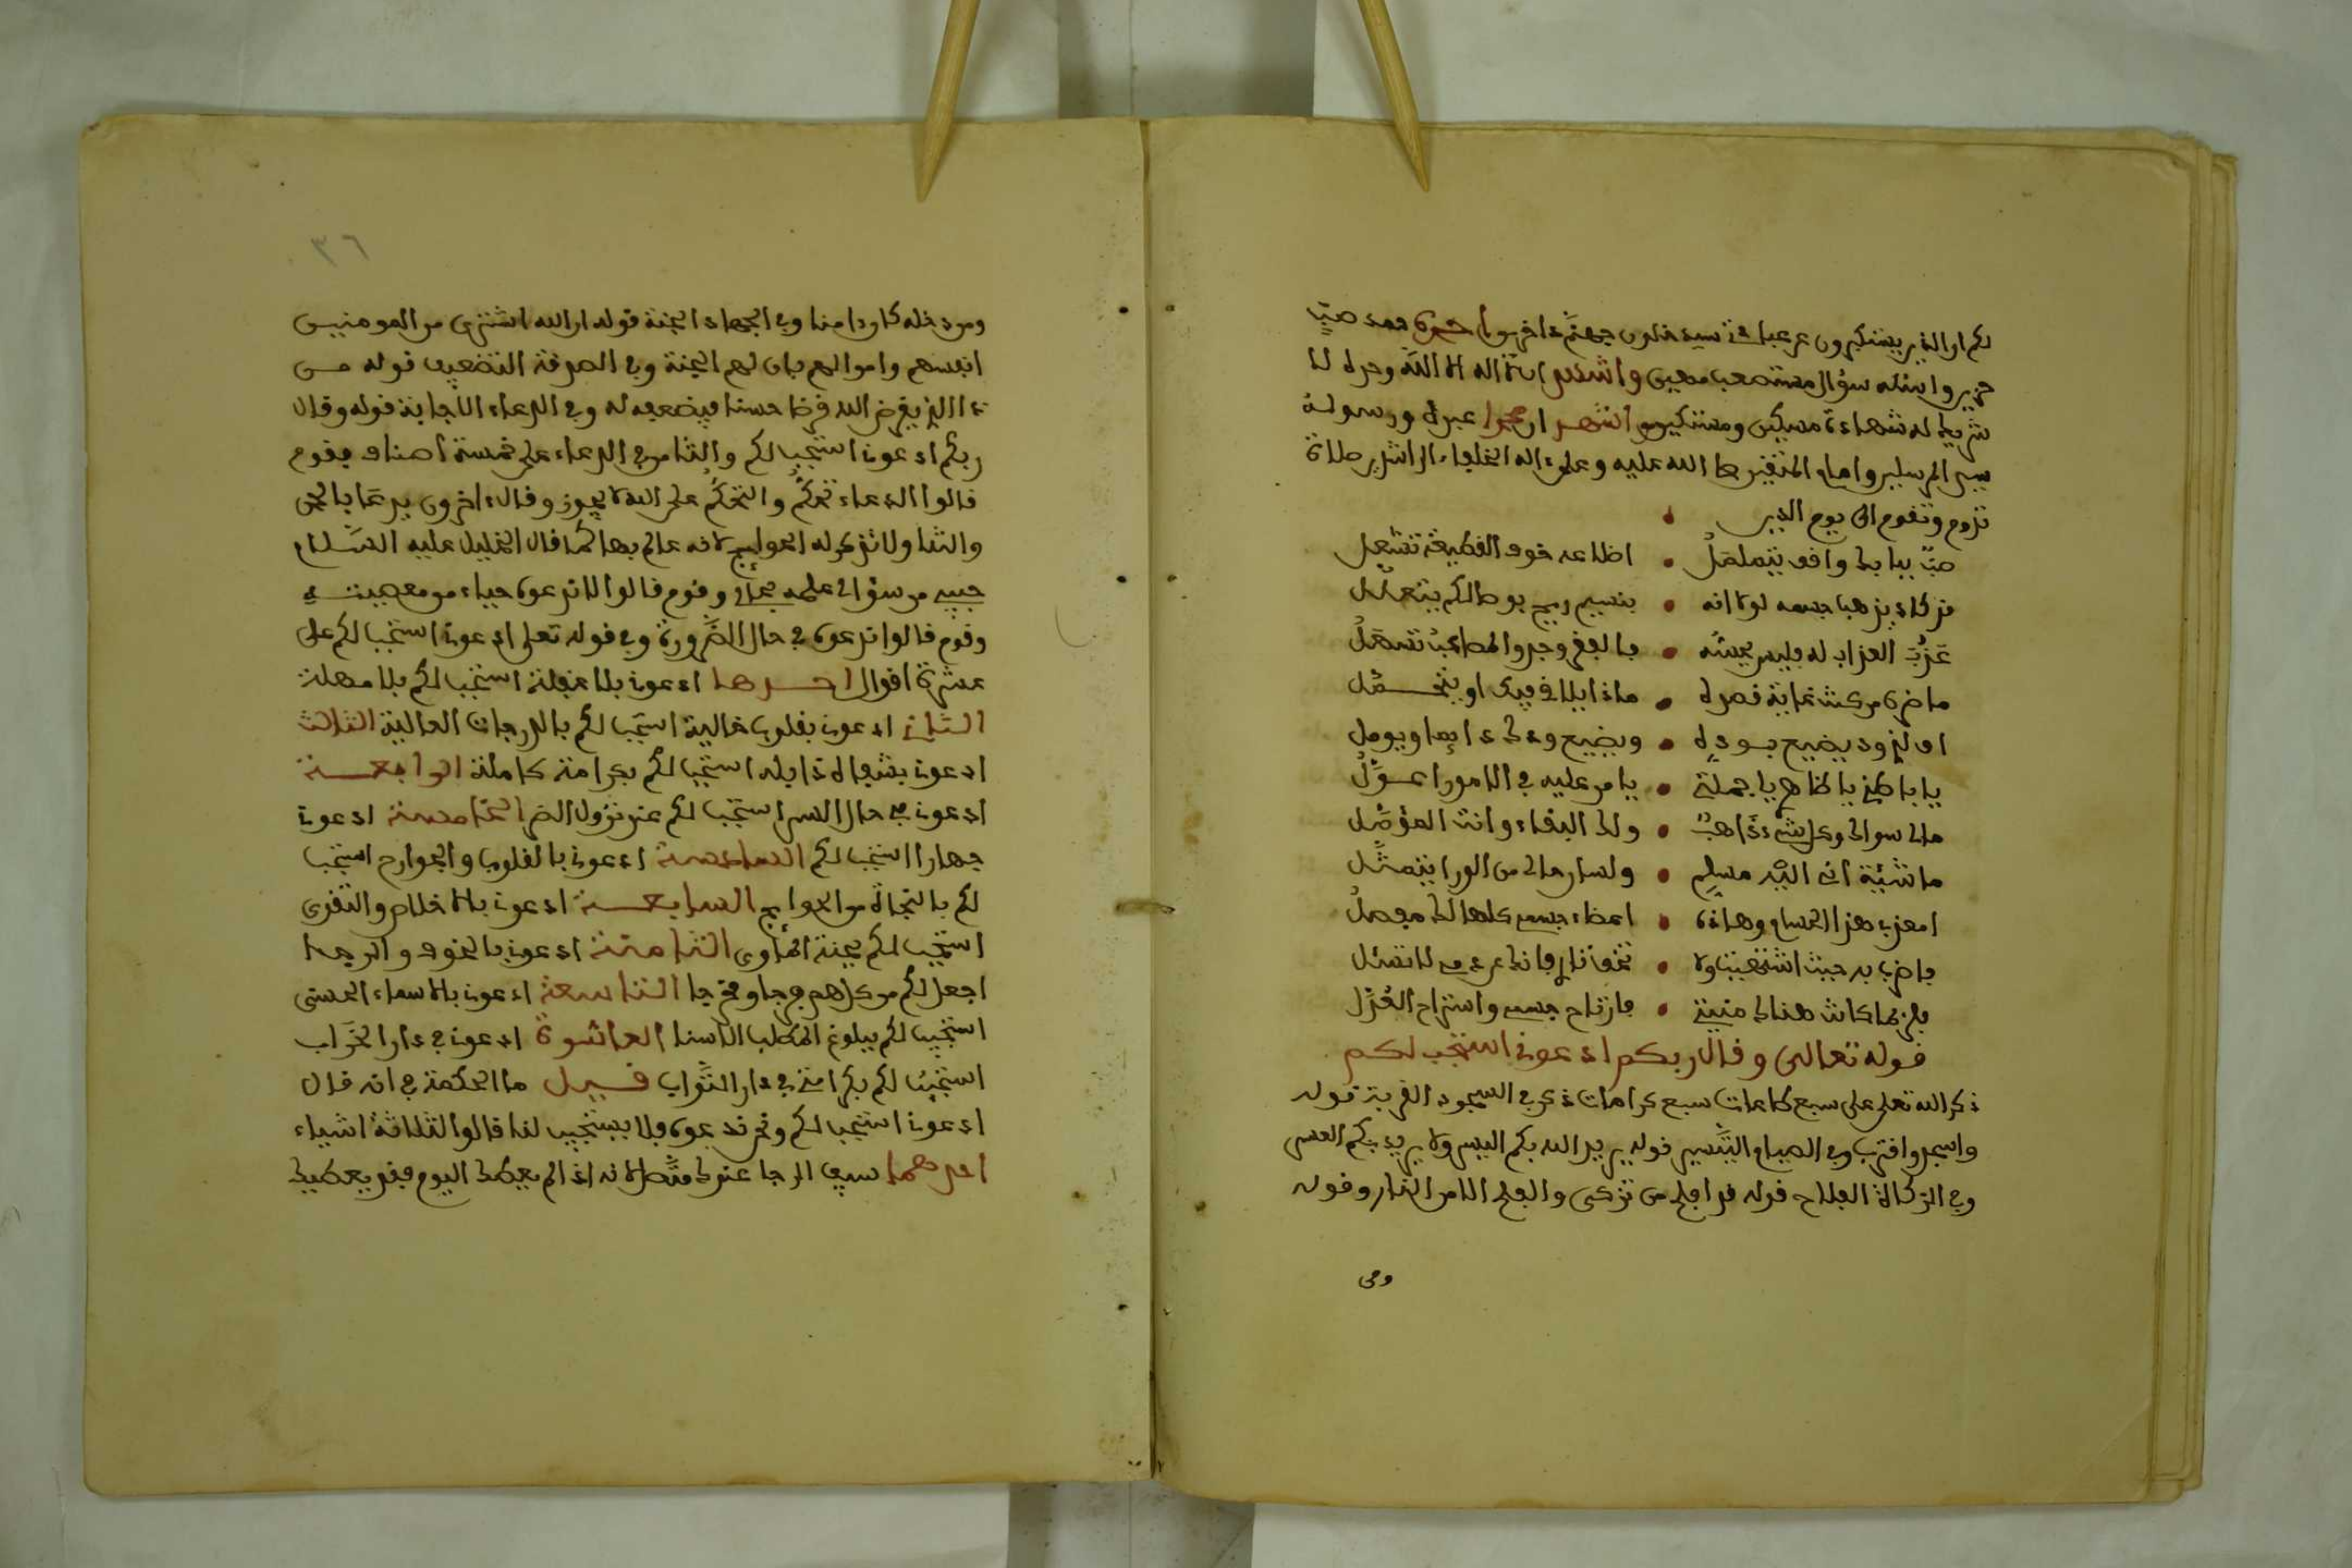 لكم ان الذين يستكبرون عن عبادتي سيدخلون جهنم داخرين احمده حمد
حزين واسئله سؤال مستصعب معين واشهد ان لا اله الا الله وحده لا
شريك له شهادة مسكين ومستكين واشهد ان محمدا عبده ورسوله
سيد المرسلين وامام المتقين صلى الله عليه وعلى ءاله الخلفاء الراشدين صلاة
تدوم وتقوم الى يوم الدين
صب ببابك واقف يتململ • اضلاعه خوف القطيعة تشعل
قد كاد يذهب جسمه لولا انه • بنسيم ريح وصالكم يتعلل
عذب العذاب له فليس يحسه •
ما ضره من كنت غاية قصده • ماذا يلاقي فيك او يتحمل
يا باطني يا ظاهري يا جملتي • يا من عليه في الامور اعول
مالي سواك وكل شيء ذاهب • ولك البقاء وانت المؤمل
ما شئته اني اليه مسلم • ولسان حالي من الورا يتمثل
امعذب هذا الحسام وهاذه • اعضاء جسمي كلها لك مفصل
فاضرب به حيث اشتهيت ولا تخف
فلربما كانت هنالك منيتي • فارتاح جسمي واستراح العذل
قوله تعالى وقال ربكم ادعوني استجب لكم
ذكر الله تعلى على سبع طاعات سبع كرامات ذكر في السجود القربة قوله
واسجد واقترب وفي الصيام التيسير قوله يريد الله بكم اليسر ولا يريد بكم العسر
وفي الزكاة الفلاح قوله قد افلح من تزكى والفلح الامن النار وقوله
ومن
٣٦
ومن دخله كان ءامنا وفي الجهاد الجنة قوله ان الله اشترى من المومنين
انفسهم واموالهم بان لهم الجنة وفي الصدقة التضعيف قوله من
ذا الذي يقرض الله قرضا حسنا فيضعفه له وفي الدعاء الاجابة قوله وقال
ربكم ادعوني استجب لكم والناس في الدعاء على خمسة اصناف فقوم
قالوا الدعاء تحكم والتحكم على الله لا يجوز وقال ءاخرون يدعا بالحمد
والثنا ولا تذكر له الحوايج لانه عالم بها كما قال الخليل عليه السلام
حسبي من سؤالي علمه بحالي وقوم قالوا لا تدعوه حياء من معصيته
وقوم قالوا تدعوه في حال الضرورة وفي قوله تعلى ادعوني استجب لكم على
عشرة اقوال احدها ادعوني بلا غفلة استجب لكم بلا مهلة
الثاني ادعوني بقلوب خالية استجب لكم بالدرجات العالية الثالث
ادعوني بشفاه ذابله استجب لكم بكرامة كاملة الرابعة
ادعوني في حال السر استجب لكم عند نزول الضر الخامسة ادعوني
جهارا استجب لكم السادسة ادعوني بالقلوب والجوارح استجب
لكم بالنجاة من الحوايج السابعة ادعوني بالاخلاص والتقوى
استجب لكم بجنة المأوى الثامنة ادعوني بالخوف والرجا
اجعل لكم من كل هم فرجا ومخرجا التاسعة ادعوني بالاسماء الحسنى
استجب لكم ببلوغ المطلب الاسنا العاشرة ادعوني في دار الخراب
استجب لكم بكرامتي في دار الثواب فيل ما الحكمة في انه قال
ادعوني استجب لكم ونحن ندعوه فلا يستجيب لنا قالوا لثلاثة اشياء
احدهما سيف الرجا عندك متصل لانه اذا لم يعطك اليوم فغد يعطيك